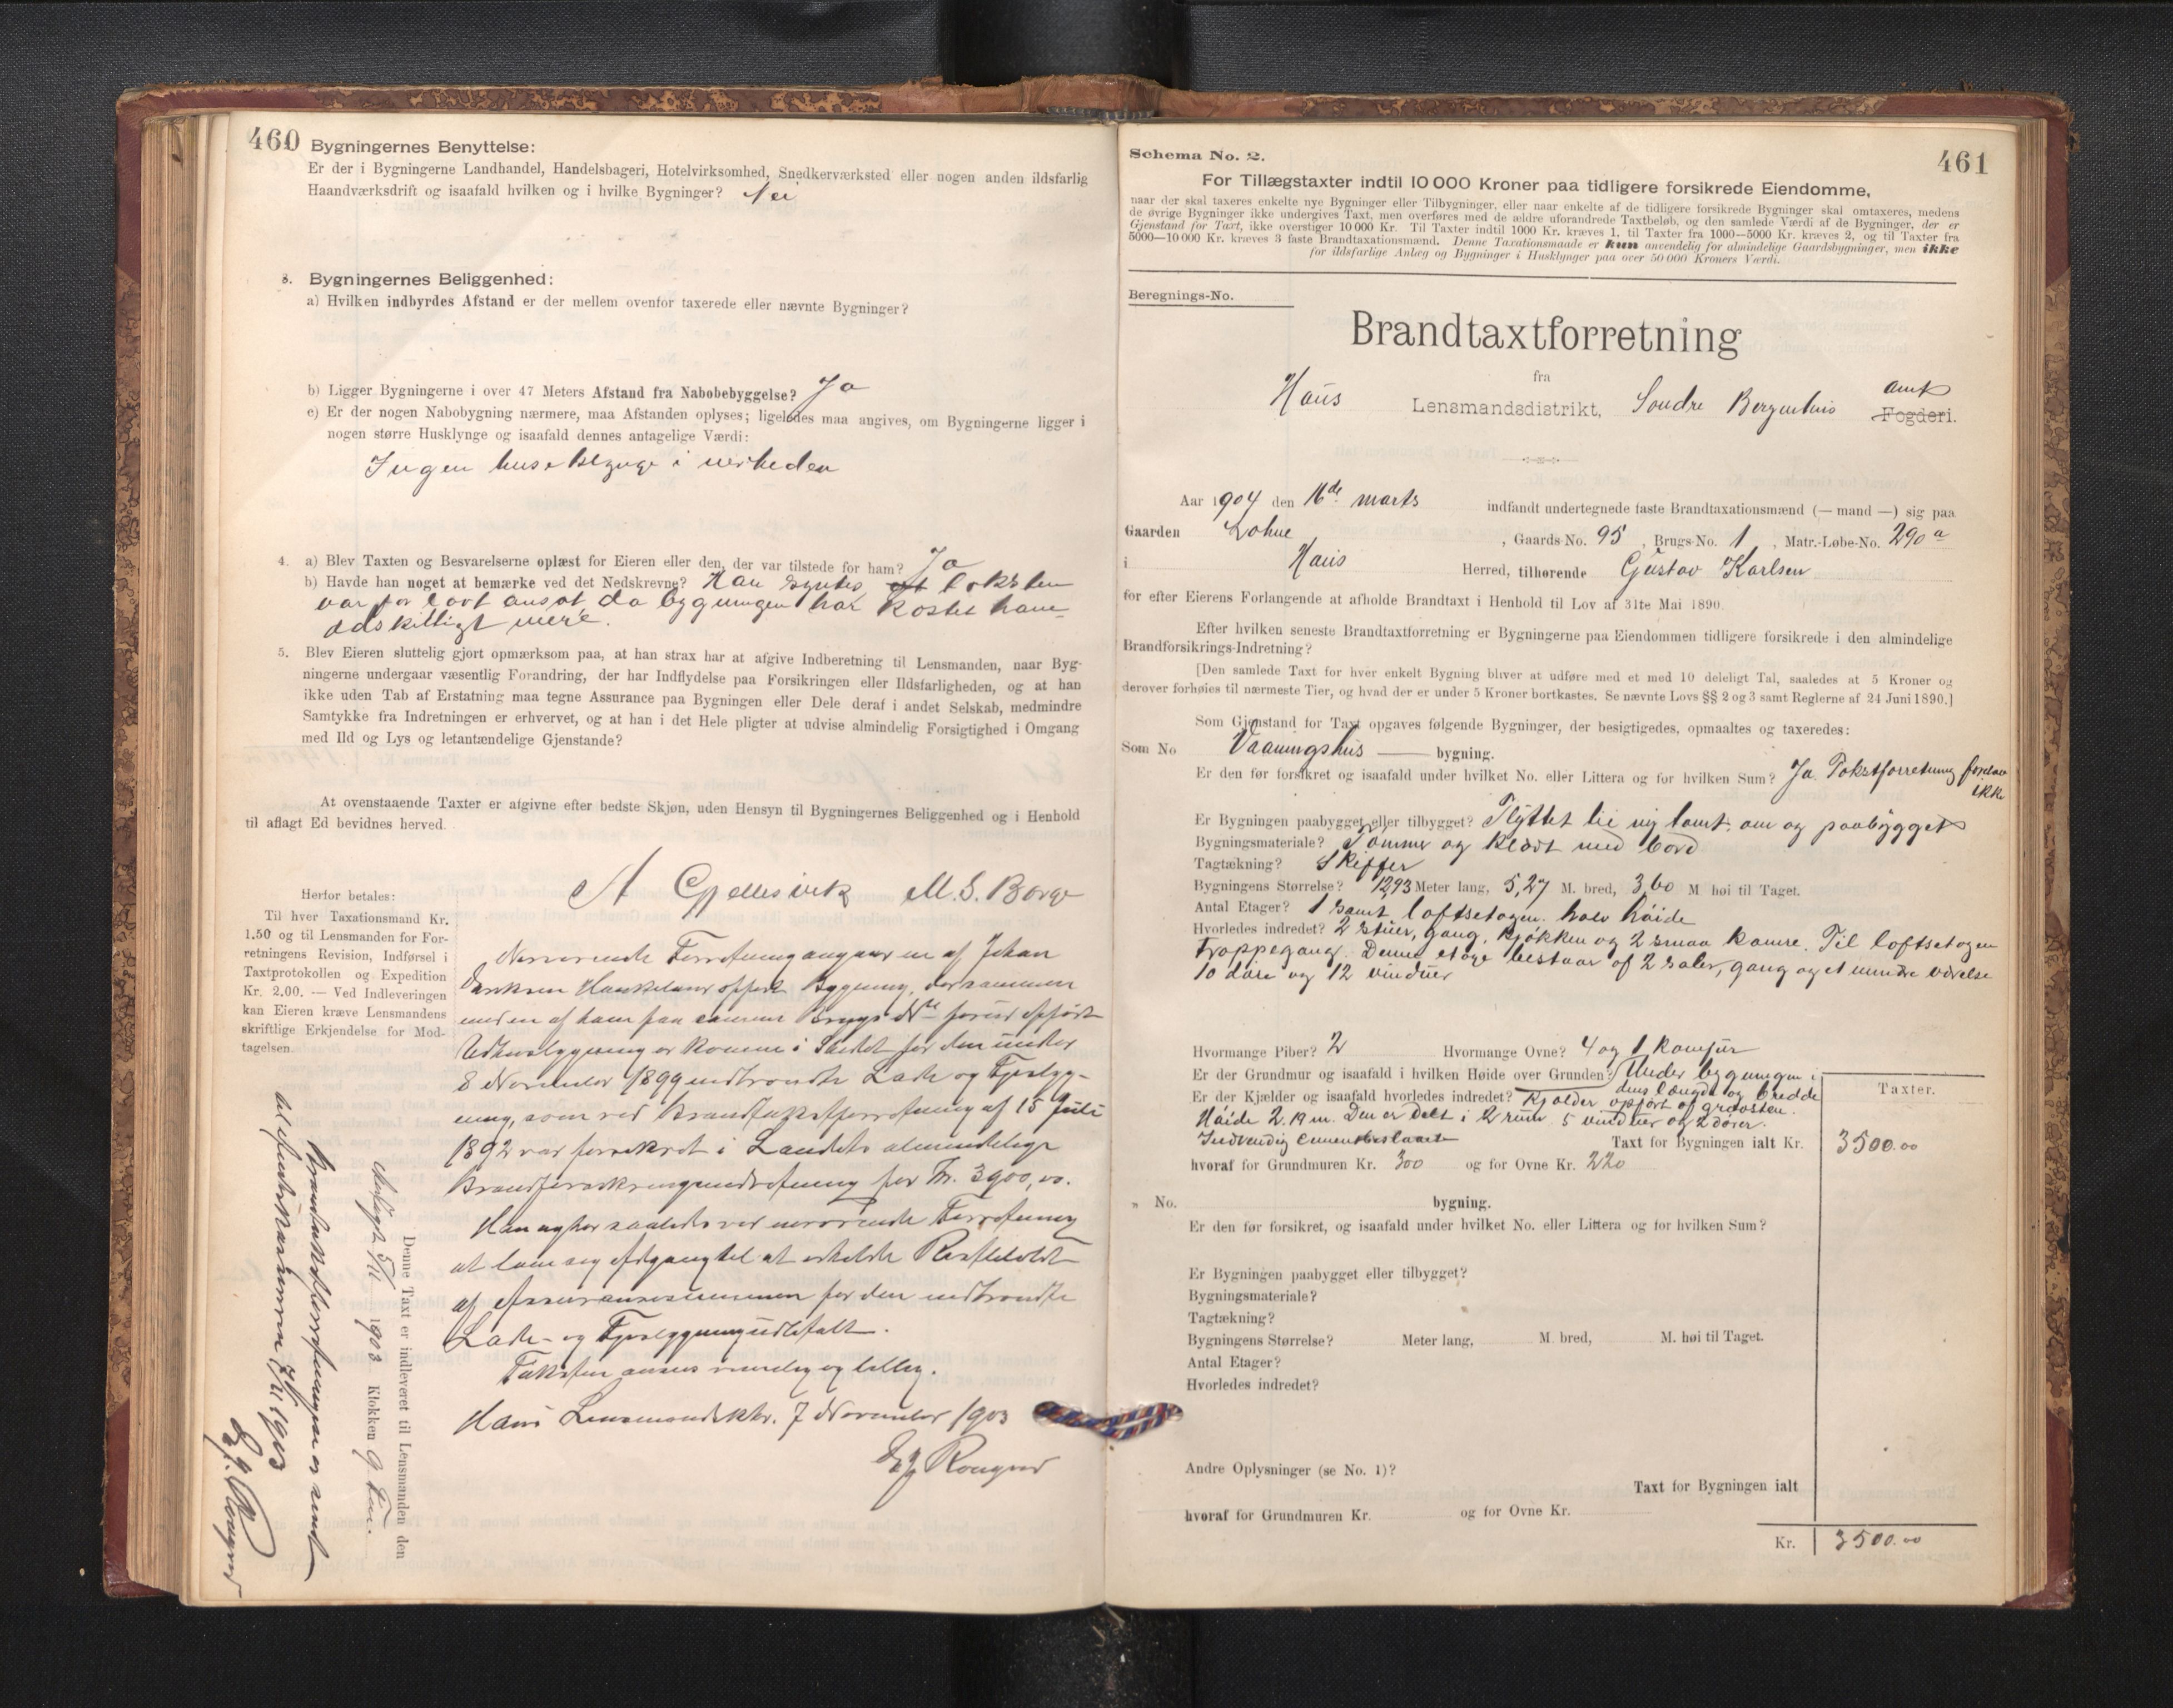 460
Bygningernes Benyttelse:
Er der i Bygningerne Landhandel, Handelsbageri, Hotelvirksomhed, Snedkerværksted eller nogen anden ildsfarlig
Haandværksdrift og isaafald hvilken og i hvilke Bygninger? Nei
3. Bygningernes Beliggenhed:
a) Hvilken indbyrdes Afstand er der mellem ovenfor taxerede eller nævnte Bygninger?
b) Ligger Bygningerne i over 47 Meters Afstand fra Nabobebyggelse? Ja
c) Er der nogen Nabobygning nærmere, maa Afstanden oplyses; ligeledes maa angives, om Bygningerne ligger i
nogen større Husklynge og isaafald dennes antagelige Værdi:
Ingen huse i nerheden
4. a) Blev Taxten og Besvarelserne oplæst for Eieren eller den, der var tilstede for ham? Ja
b) Havde han noget at bemærke ved det Nedskrevne? Han syntes at taksten
var for lavt ansat, da bygningen har kostet ham
adskilligt mere.
5. Blev Eieren sluttelig gjort opmærksom paa, at han strax har at afgive Indberetning til Lensmanden, naar Byg-
ningerne undergaar væsentlig Forandring, der har Indflydelse paa Forsikringen eller Ildsfarligheden, og at han
ikke uden Tab af Erstatning maa tegne Assurance paa Bygningen eller Dele deraf i andet Selskab, medmindre
Samtykke fra Indretningen er erhvervet, og at han i det Hele pligter at udvise almindelig Forsigtighed i Omgang
med Ild og Lys og letantændelige Gjenstande?
At ovenstaaende Taxter er afgivne efter bedste Skjøn, uden Hensyn til Bygningernes Beliggenhed og i Henhold
til aflagt Ed bevidnes herved.
A Gjellesvik M. S. Borge
Herfor betales:
Til hver Taxationsmand Kr.
1.50 og til Lensmanden for For-
retningens Revision, Indførsel i
Taxtprotokollen og Expedition
Kr. 2.00. — Ved Indleveringen
kan Eieren kræve Lensmandens
skriftlige Erkjendelse for Mod-
tagelsen.
Nærværende Forretning angaar en af Johan
Haukeland opført Bygning, der sammen
med en af ham paa samme Brugs No forud opført
Udhusbygning er kommen i Stedet for den under
8 November 1899 nedbrændte Lade og Fjøsbyg-
ning, som ved Brandtakstforretning af 15 Juli
1892 var forsikret i Landets almindelige
Brandforsikringsindretning for Kr. 3900,00.
Han agter saaledes ved nærværende Forretning
at lave sig Adgang til at erholde Restbeløbet
af Assurancesummen for den nedbrændte
Lade- og Fjøsbygning udbetalt.
Taksten ansees rimelig og billig.
Haus Lensmandsktr. 7 November 1903
Denne Taxt er indleveret til Lensmanden den
Klokken 9 Em.
Brandtakstforretningen er sendt
461
Schema No. 2.
For Tillægstaxter indtil 10 000 Kroner paa tidligere forsikrede Eiendomme,
naar der skal taxeres enkelte nye Bygninger eller Tilbygninger, eller naar enkelte af de tidligere forsikrede Bygninger skal omtaxeres, medens
de øvrige Bygninger ikke undergives Taxt, men overføres med de ældre uforandrede Taxtbeløb, og den samlede Værdi af de Bygninger, der er
Gjenstand for Taxt, ikke overstiger 10 000 Kr. Til Taxter indtil 1000 Kr. kræves 1, til Taxter fra 1000—5000 Kr. kræves 2, og til Taxter fra
5000—10 000 Kr. kræves 3 faste Brandtaxationsmænd. Denne Taxationsmaade er kun anvendelig for almindelige Gaardsbygninger, men ikke
for ildsfarlige Anlæg og Bygninger i Husklynger paa over 50 000 Kroners Værdi.
Beregnings-No.
Brandtaxtforretning
fra
Haus Lensmandsdistrikt, Søndre Bergenhus amt Fogderi.
Aar 1904 den 16de marts indfandt undertegnede faste Brandtaxationsmænd (— mand —) sig paa
Gaarden Lohne, Gaards-No. 95, Brugs-No. 1, Matr.-Løbe-No. 290 a
i Haus Herred, tilhørende Gustav Karlsen
for efter Eierens Forlangende at afholde Brandtaxt i Henhold til Lov af 31te Mai 1890.
Efter hvilken seneste Brandtaxtforretning er Bygningerne paa Eiendommen tidligere forsikrede i den almindelige
Brandforsikrings-Indretning?
[Den samlede Taxt for hver enkelt Bygning bliver at udføre med et med 10 deleligt Tal, saaledes at 5 Kroner og
derover forhøies til nærmeste Tier, og hvad der er under 5 Kroner bortkastes. Se nævnte Lovs §§ 2 og 3 samt Reglerne af 24 Juni 1890.]
Som Gjenstand for Taxt opgaves følgende Bygninger, der besigtigedes, opmaaltes og taxeredes:
Som No Vaaningshus — bygning.
Er den før forsikret og isaafald under hvilket No. eller Littera og for hvilken Sum? Ja. Takstforretning ikke
Er Bygningen paabygget eller tilbygget? Flyttet til ny tomt, om og paabygget
Bygningsmateriale? Tømmer og klædt med bord
Tagtækning? Skiffer
Bygningens Størrelse? 12,93 Meter lang, 5,27 M. bred, 3,60 M. høi til Taget.
Antal Etager? 1 samt loftsetagen. halv høide
Hvorledes indredet? 2 stuer, gang, kjøkken og 2 smaa kamre. Til loftsetagen
Trappegang. Denne etage bestaar af 2 saler, gang og et mindre værelse
10 døre og 12 vinduer
Hvormange Piber? 2 Hvormange Ovne? 4 og 1 komfur
Er der Grundmur og isaafald i hvilken Høide over Grunden? Under bygningen i
dens længde og bredde
Er der Kjælder og isaafald hvorledes indredet? Kjælder opført af graasten.
Høide 2,19 m. Den er delt i 2 rum 5 vinduer og 2 dører.
Indvendig cementeslaaet Taxt for Bygningen ialt Kr. 3500.00
hvoraf for Grundmuren Kr. 300 og for Ovne Kr. 220
Taxter.
„ No. bygning.
Er den før forsikret, og isaafald under hvilket No. eller Littera og for hvilken Sum?
Er Bygningen paabygget eller tilbygget?
Bygningsmateriale?
Tagtækning?
Bygningens Størrelse? Meter lang, M. bred, M. høi til Taget.
Antal Etager?
Hvorledes indredet?
Andre Oplysninger (se No. 1)?
Taxt for Bygningen ialt
hvoraf for Grundmuren Kr. og for Ovne Kr.
Kr. 3500.00